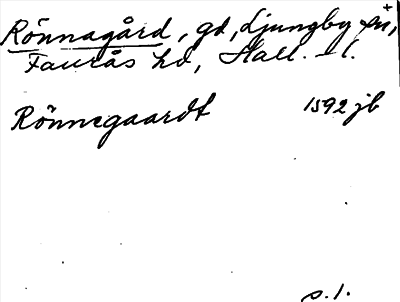 Rönnagård, gd, Ljungby sn,
Faurås hd, Hall. l.
Rönnegaardt 1592 jb
s. 1.